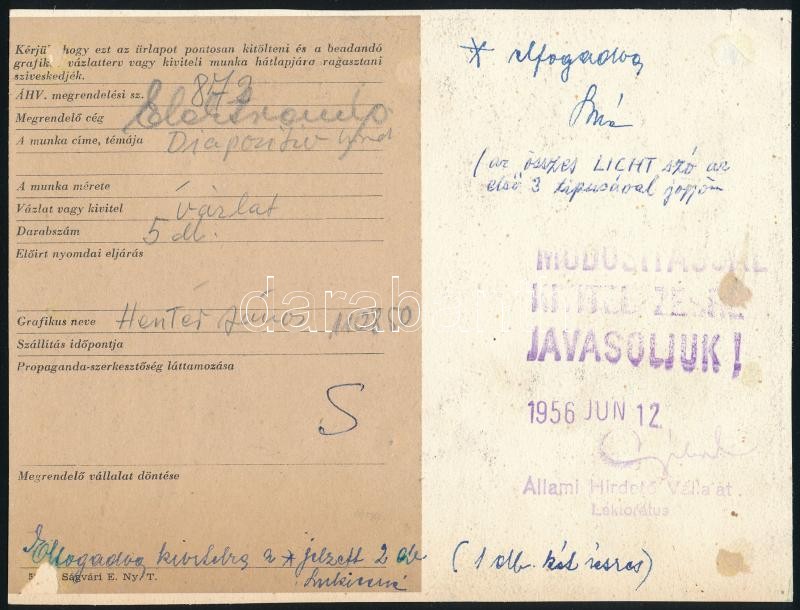 Kérjük hogy ezt az űrlapot pontosan kitölteni és a beadandó
grafik vázlatterv vagy kiviteli munka hátlapjára ragasztani
sziveskedjék.
ÁHV. megrendelési sz. 873
Megrendelő cég
A munka címe, témája Diapozitiv
A munka mérete
Vázlat vagy kivitel Vázlat
Darabszám 5 db.
Előirt nyomdai eljárás
Grafikus neve Henter János
Szállítás időpontja
Propaganda-szerkesztőség láttamozása
S
Megrendelő vállalat döntése
Elfogadva kivitelre a * jelzett 2 db
Ságvári E. Ny. T.
* elfogadva
/ az összes LICHT szó az
első 3 tipusával jöjjön
MÓDOSITÁSSAL
KIVITELEZÉSRE
JAVASOLJUK !
1956 JUN 12.
Állami Hirdető Vállalat
Lektorátus
(1 db. két részes)
darabanth